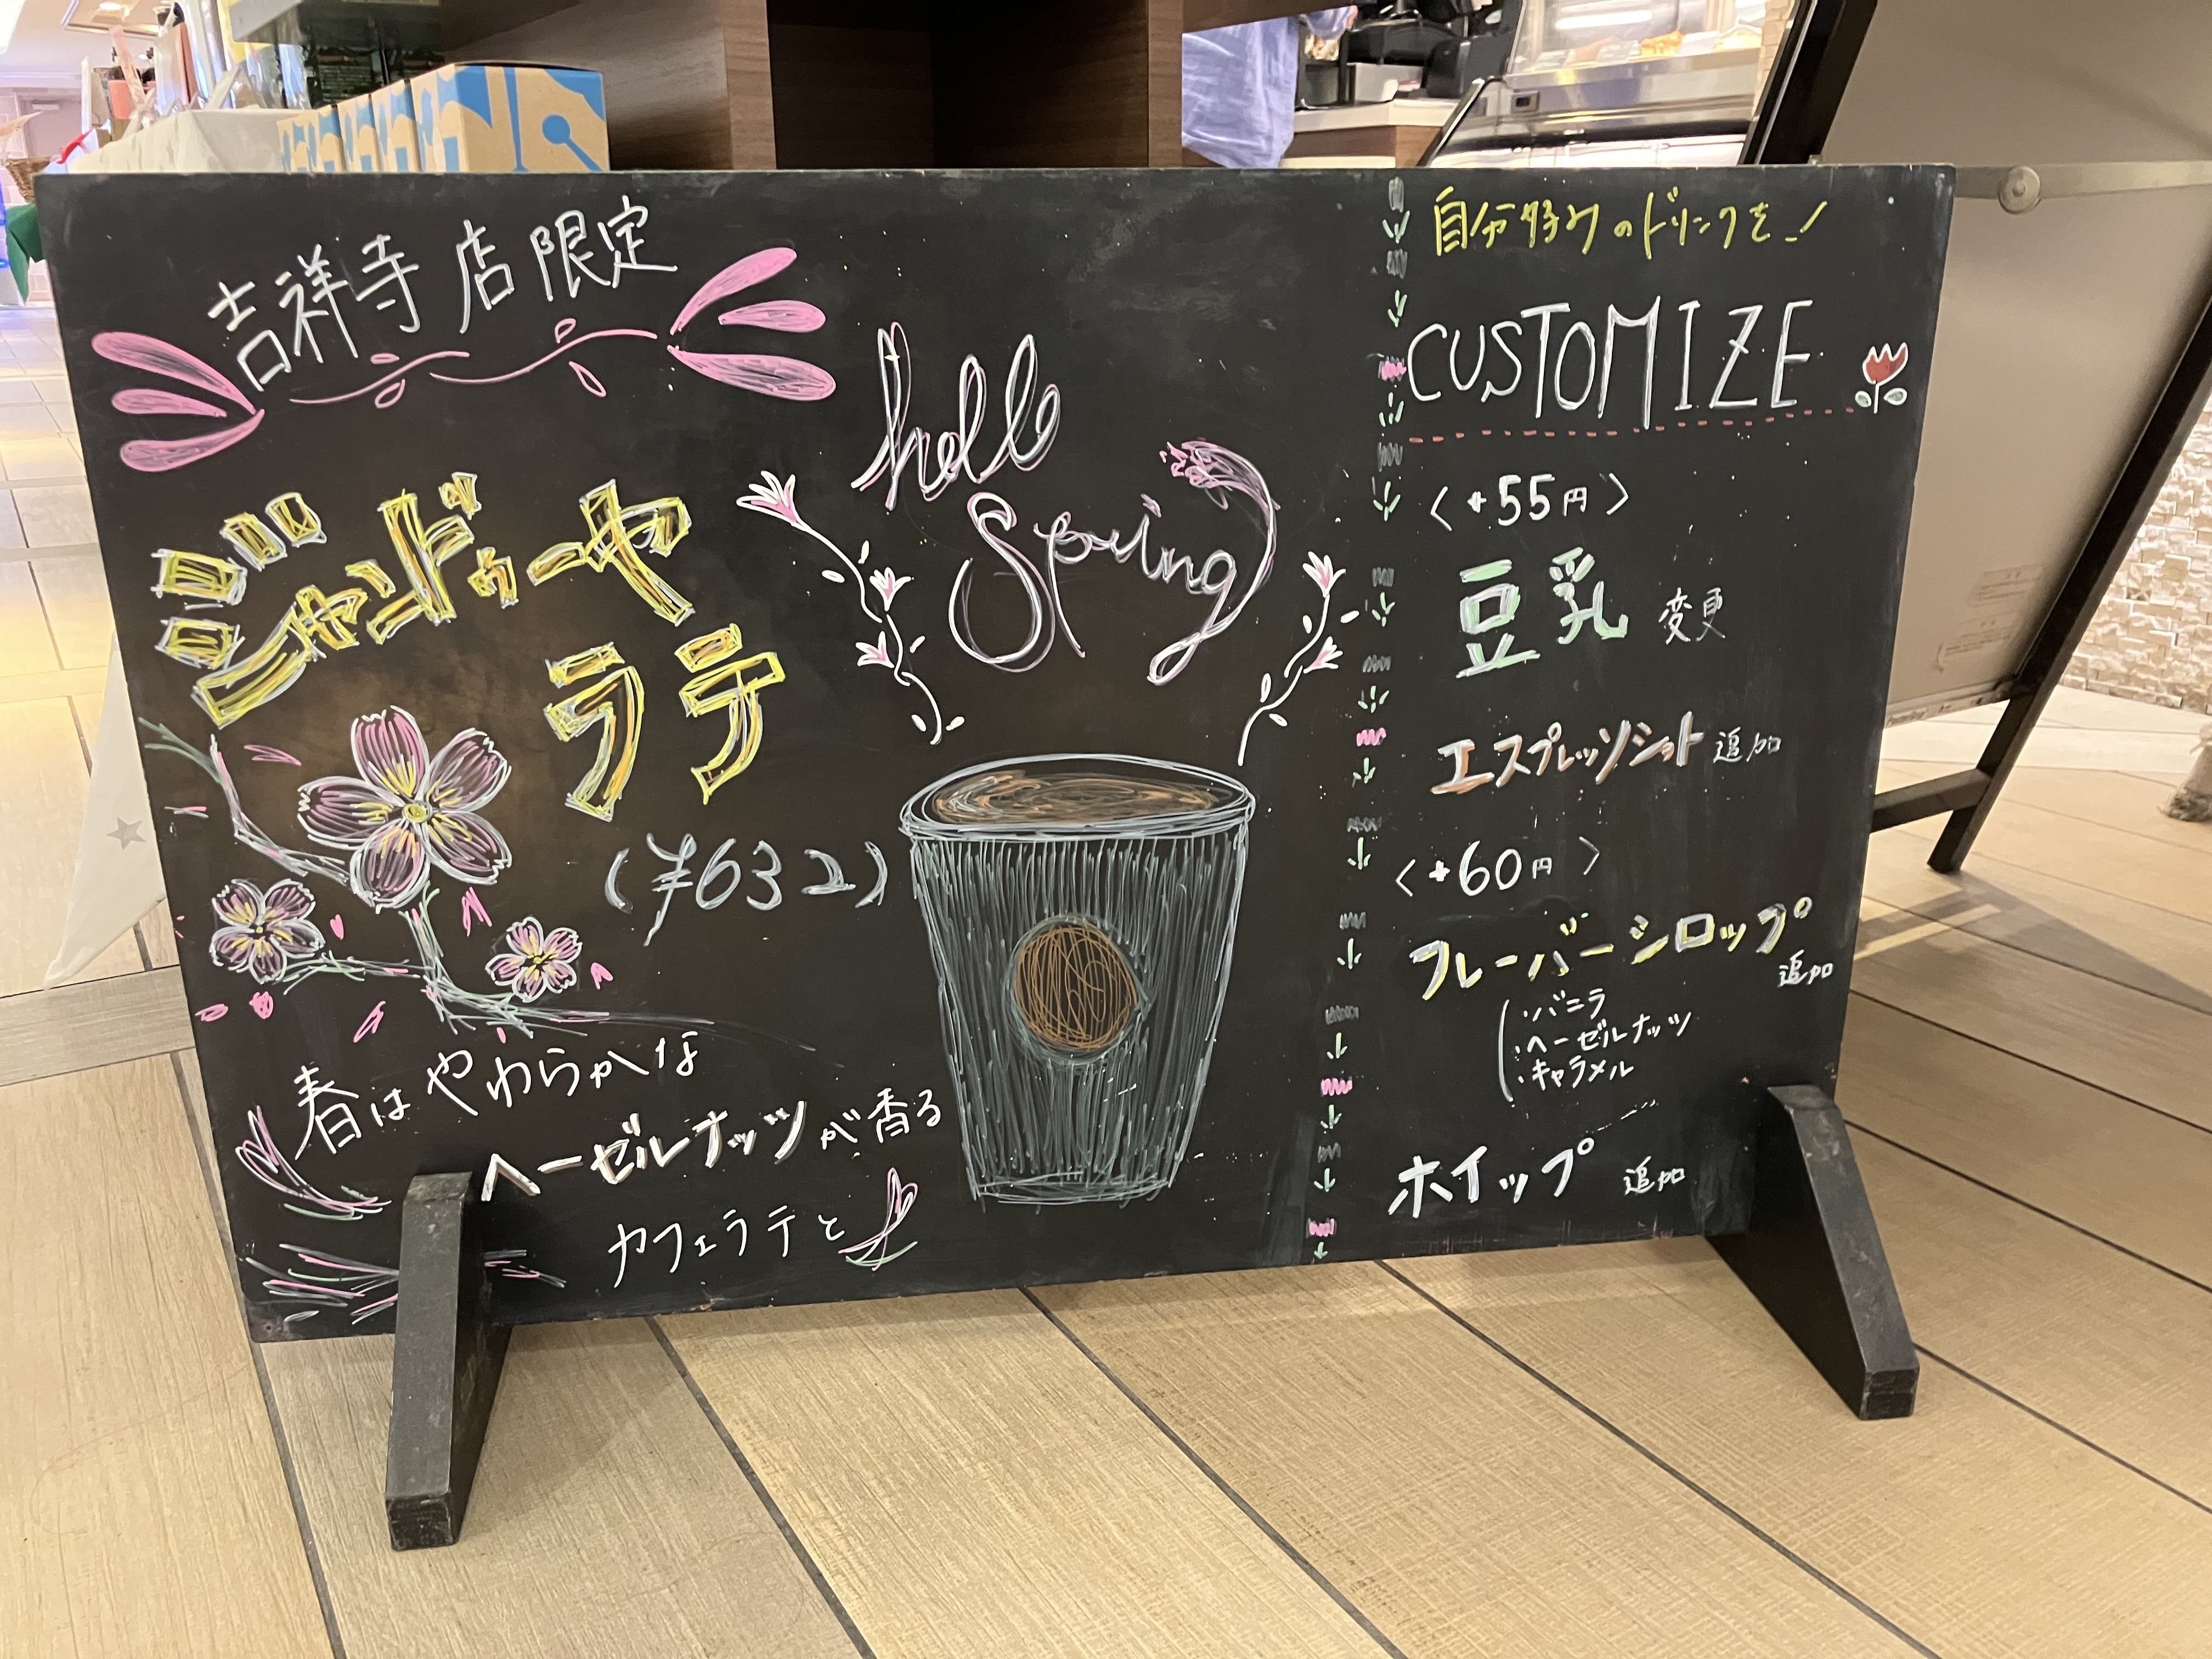 吉祥寺店限定
ジャンドゥーヤ
ラテ
(¥632)
春はやわらかな
ヘーゼルナッツが香る
カフェラテと
hello
Spring
自分好みのドリンクを!
CUSTOMIZE
〈+55円〉
豆乳 変更
エスプレッソショット 追加
〈+60円〉
フレーバーシロップ
追加
・バニラ
・ヘーゼルナッツ
・キャラメル
ホイップ 追加